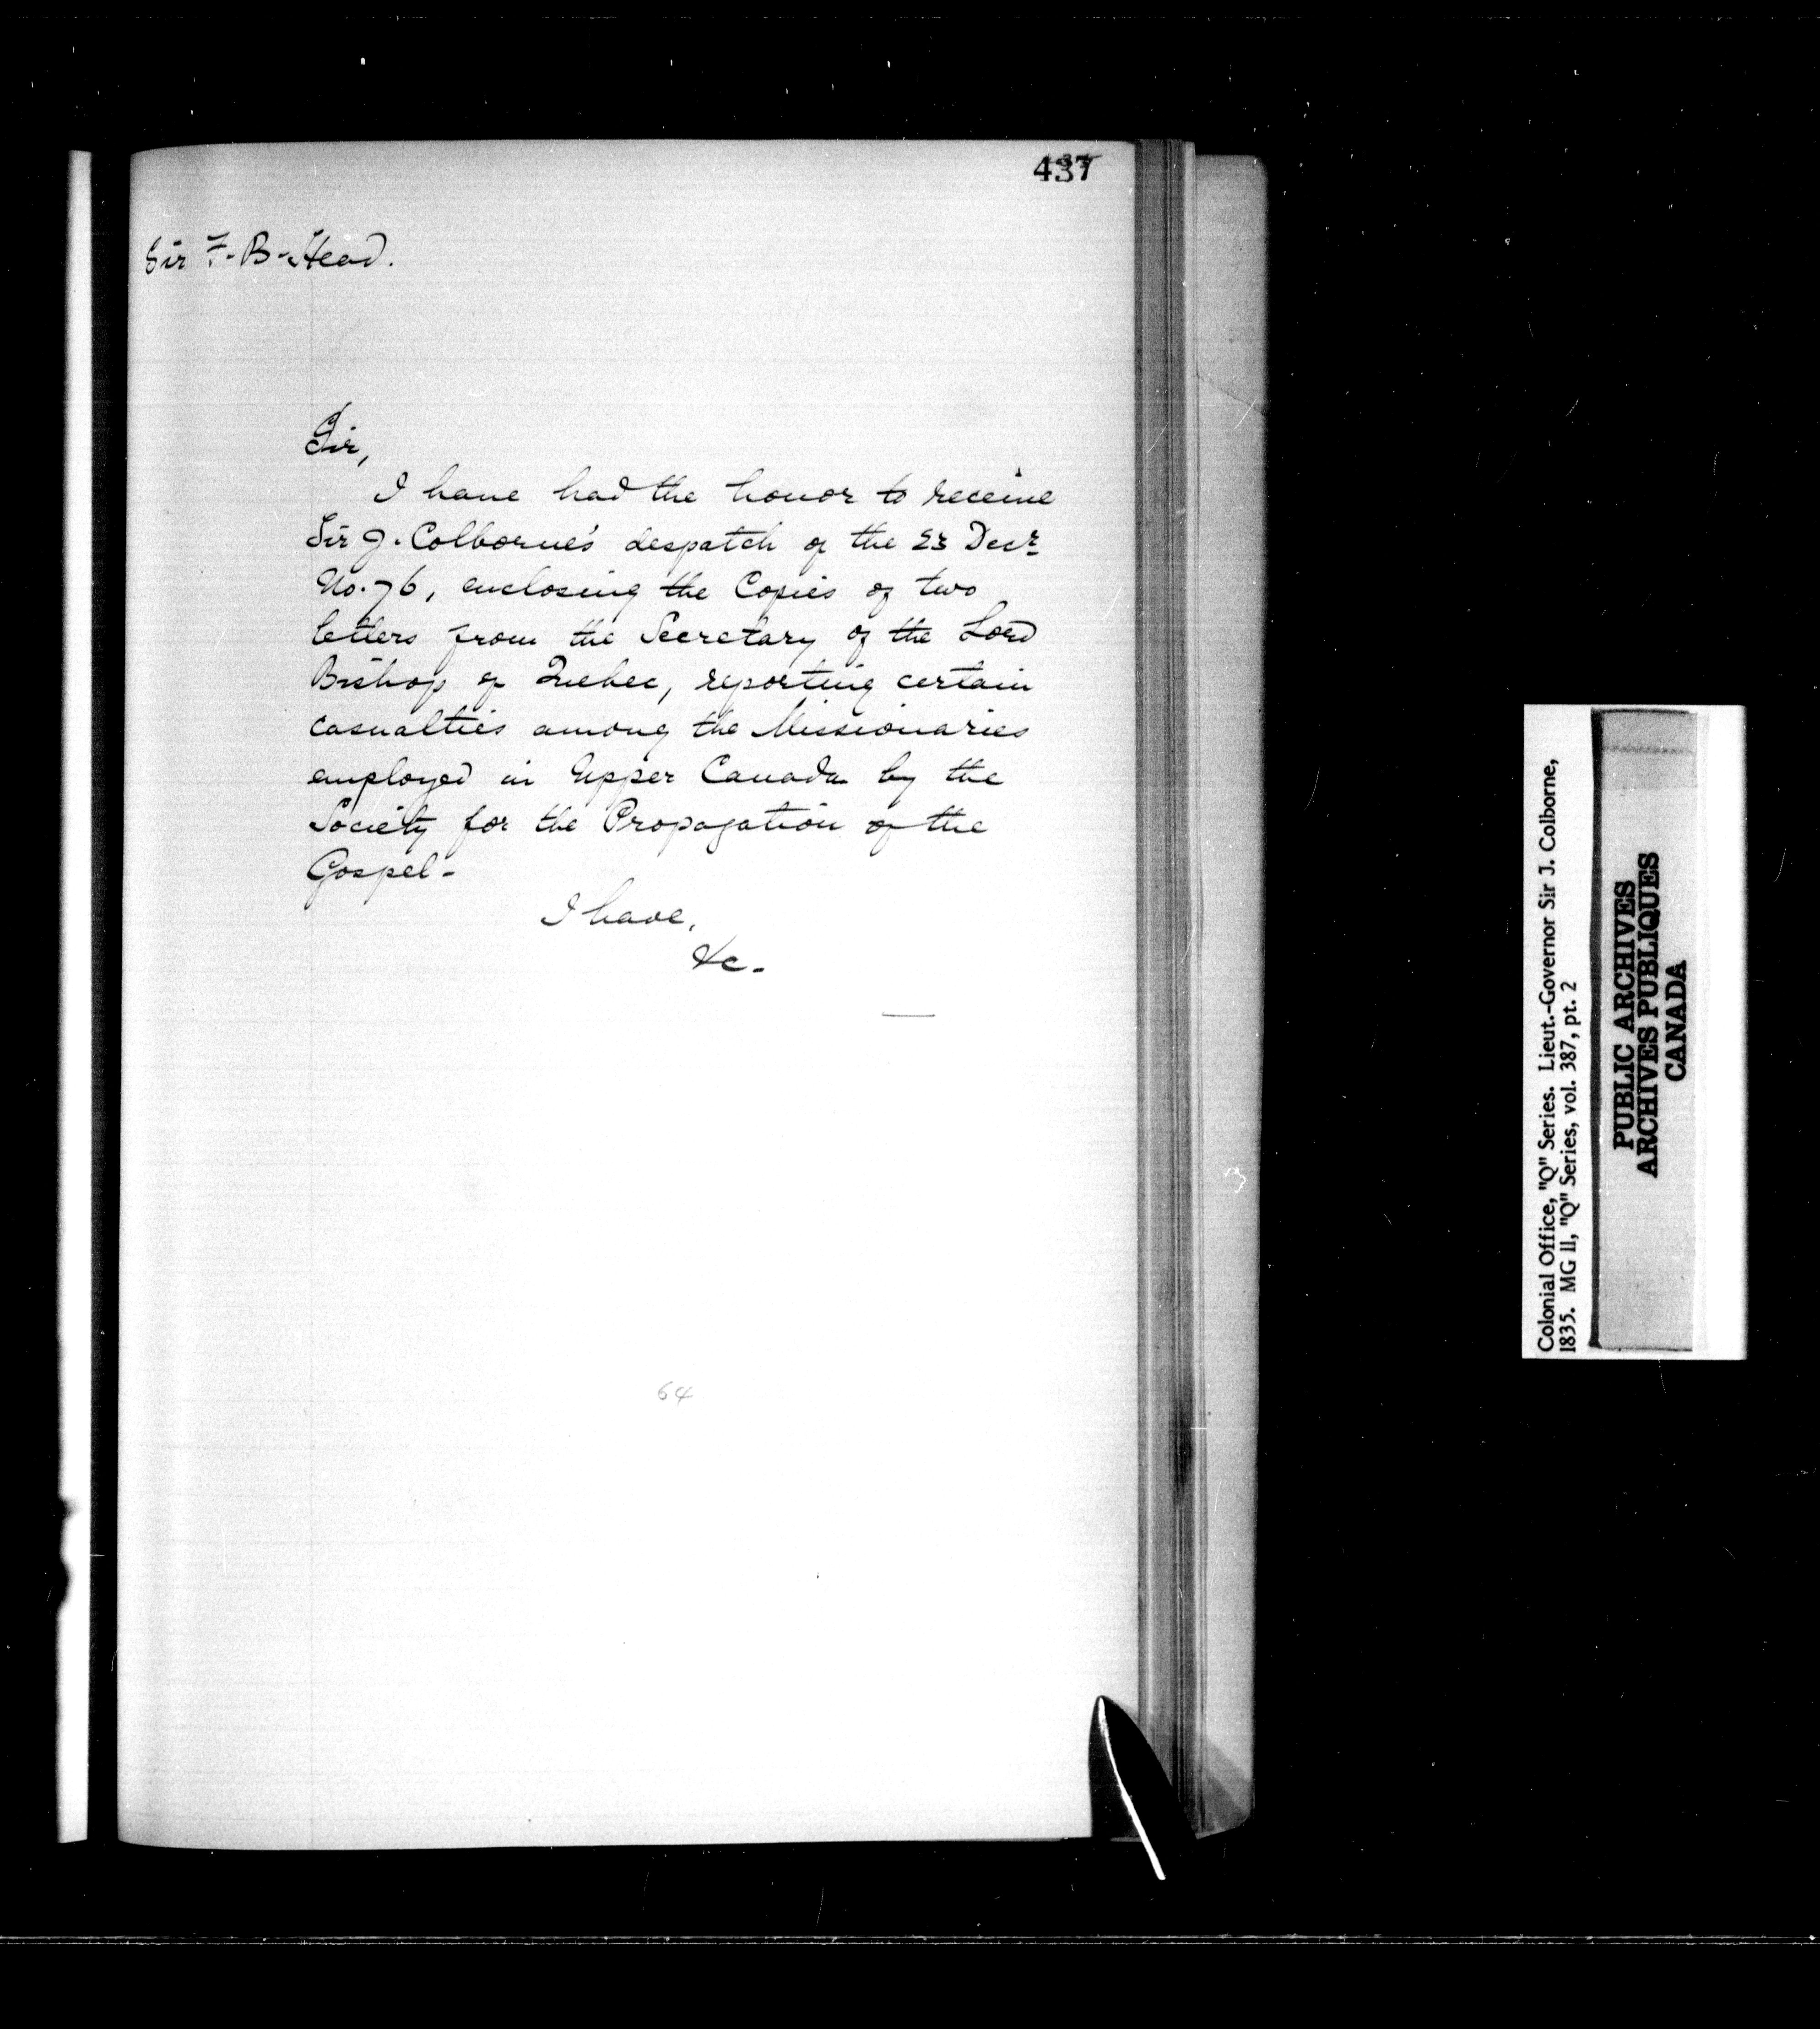 437
Sir F. B. Head.
Sir,
I have had the honor to receive
Sir J. Colborne's despatch of the 23 Decr
No. 76, enclosing the Copies of two
letters from the Secretary of the Lord
Bishop of Quebec, reporting certain
casualties among the Missionaries
employed in Upper Canada by the
Society for the Propagation of the
Gospel-
I have,
&c-
64
Colonial Office, "Q" Series. Lieut.-Governor Sir J. Colborne,
1835. MG 11, "Q" Series, vol. 387, pt. 2
PUBLIC ARCHIVES
ARCHIVES PUBLIQUES
CANADA